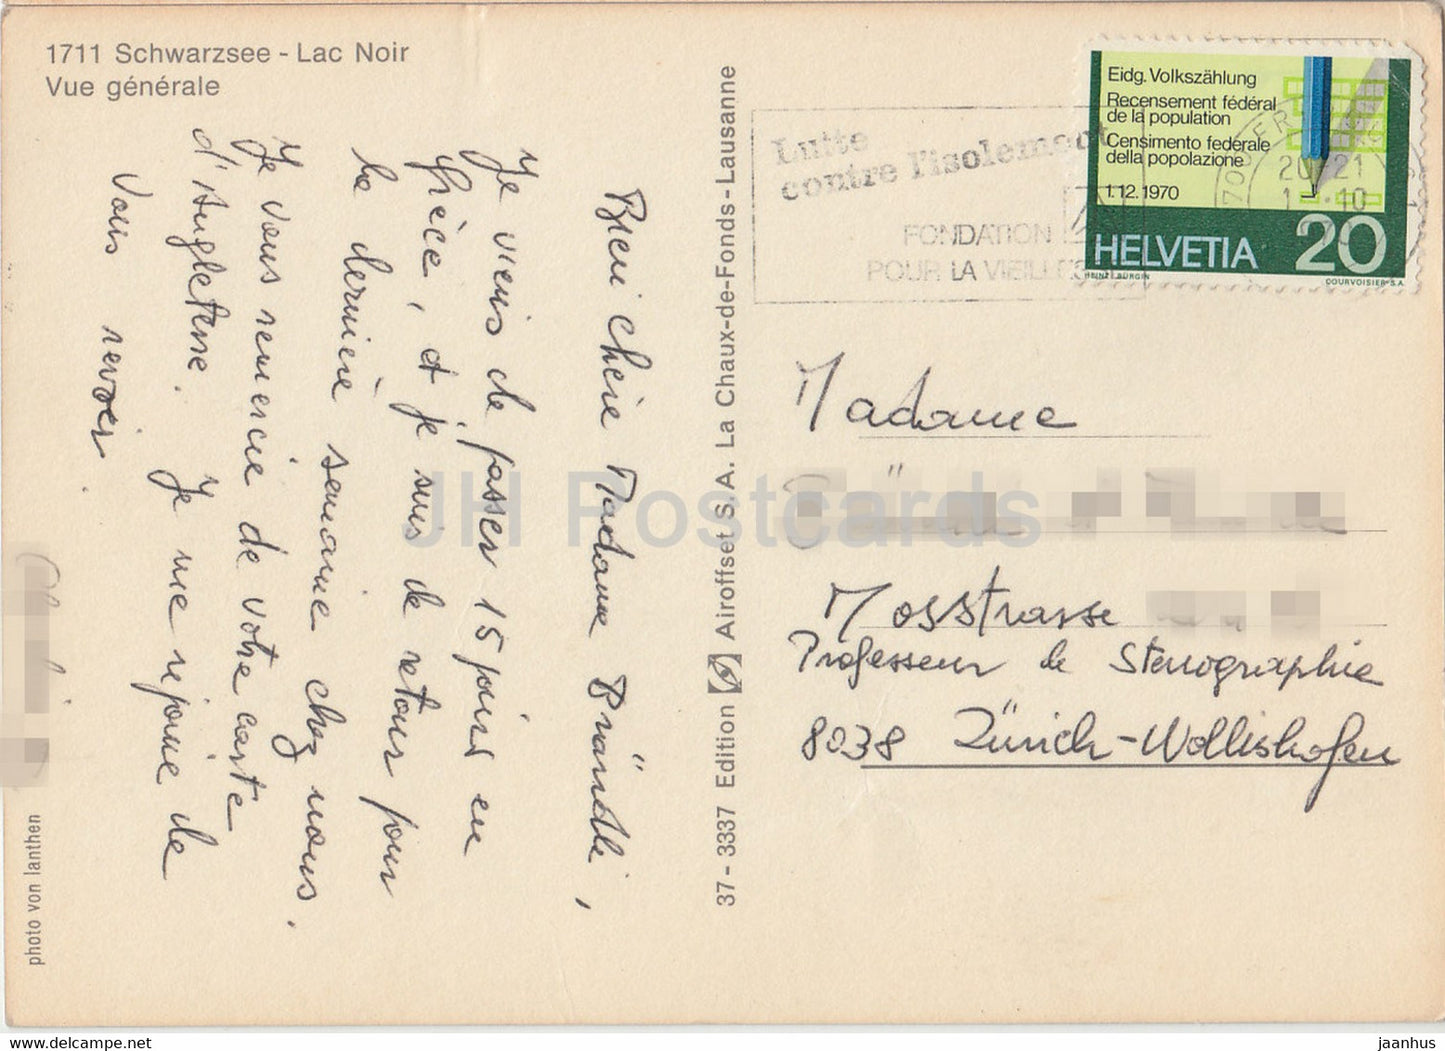 1711 Schwarzsee - Lac Noir
Vue générale
Bien chère Madame Brändli,
Je viens de passer 15 jours en
Grèce, et je suis de retour pour
la dernière semaine chez nous.
Je vous remercie de votre carte
d'Angleterre. Je me réjouie de
vous revoir.
photo von lanthen
37 - 3337 Edition Airoffset S. A. La Chaux-de-Fonds - Lausanne
Lutte
contre l'isolement
FONDATION
POUR LA VIEILLES
Eidg. Volkszählung
Recensement fédéral
de la population
Censimento federale
della popolazione
1.12.1970
HELVETIA 20
HEINZ BÜRGIN
COURVOISIER S.A.
1700 FR
20 - 21
10
Madame
Mosstrasse
Professeur de Stenographie
8038 Zürich-Wollishofen
JH Postcards
www.delcampe.net
jaanhus